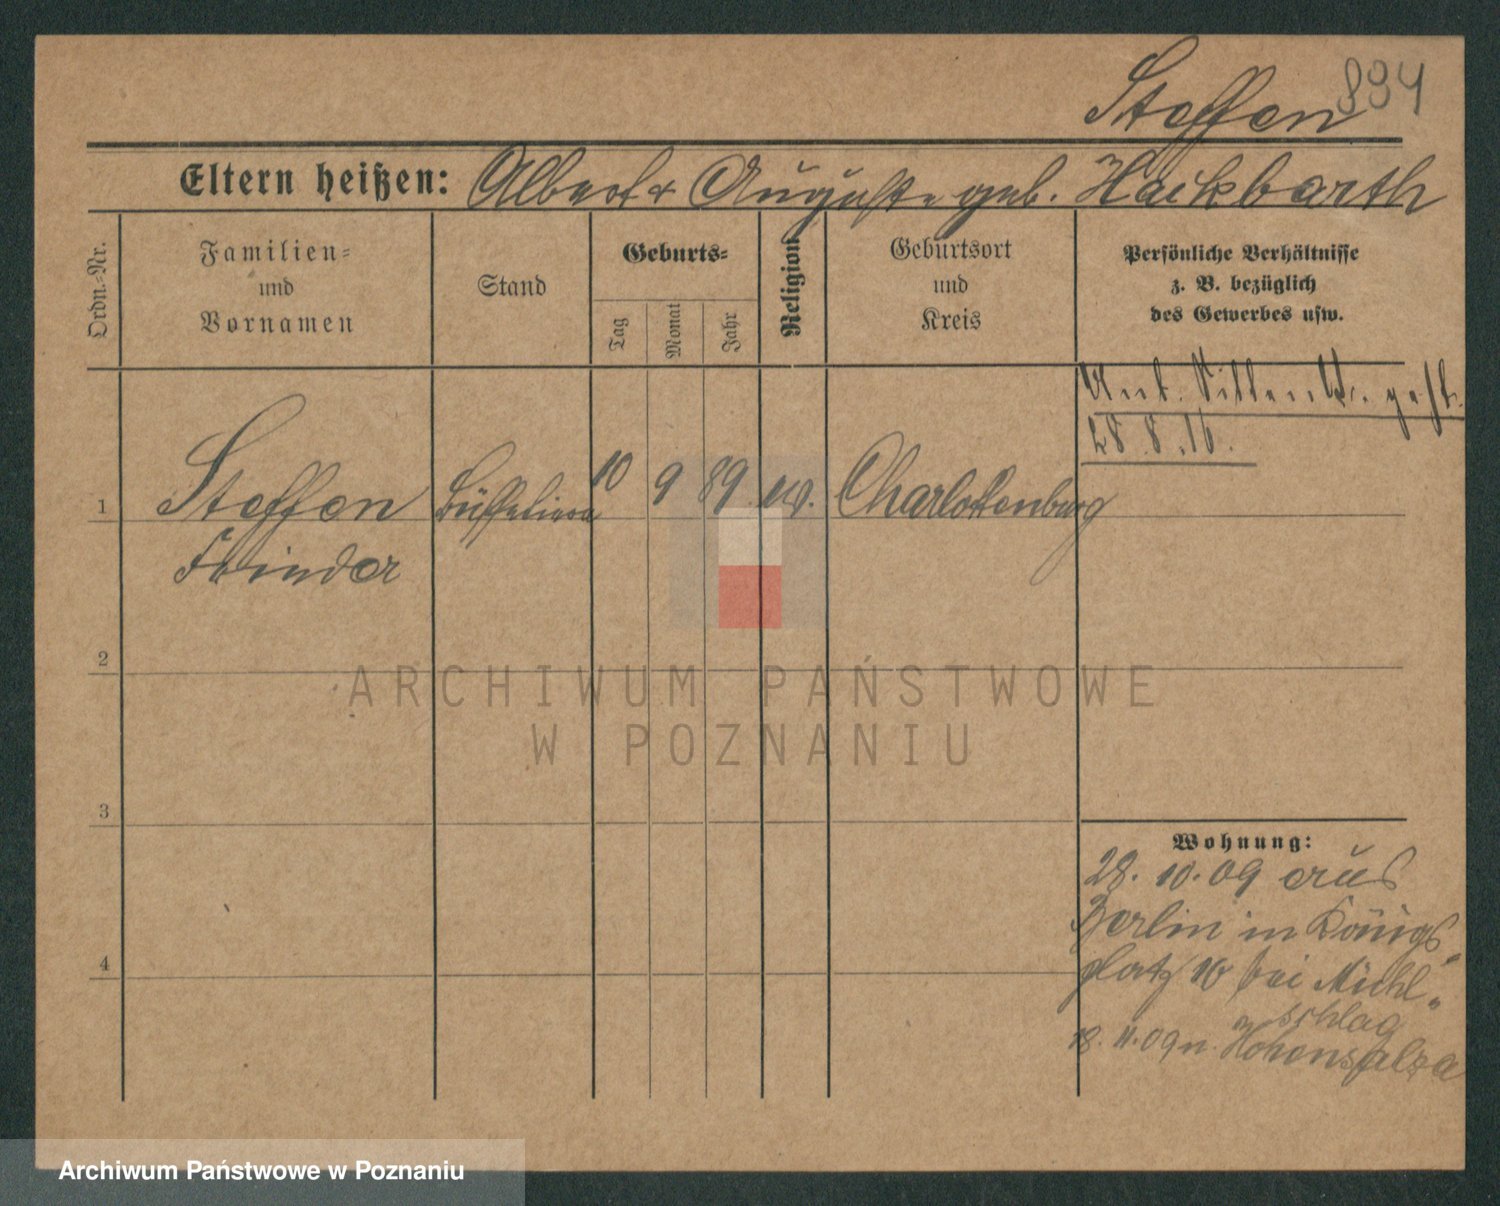 894
Steffen
Eltern heißen: Albert & Auguste geb. Hackbarth
Ordn.-Nr.
Familien-
und
Vornamen
Stand
Geburts-
Tag
Monat
Jahr
Religion
Geburtsort
und
Kreis
Persönliche Verhältnisse
z. B. bezüglich
des Gewerbes usw.
28.8.16.
1 Steffen 10 9 89 ev. Charlottenburg
2
3
4
Wohnung:
28. 10. 09 aus
Berlin in Königs-
platz 10 bei Michl-
schlag
18. 11. 09 n. Hohensalza
ARCHIWUM PAŃSTWOWE
W POZNANIU
Archiwum Państwowe w Poznaniu